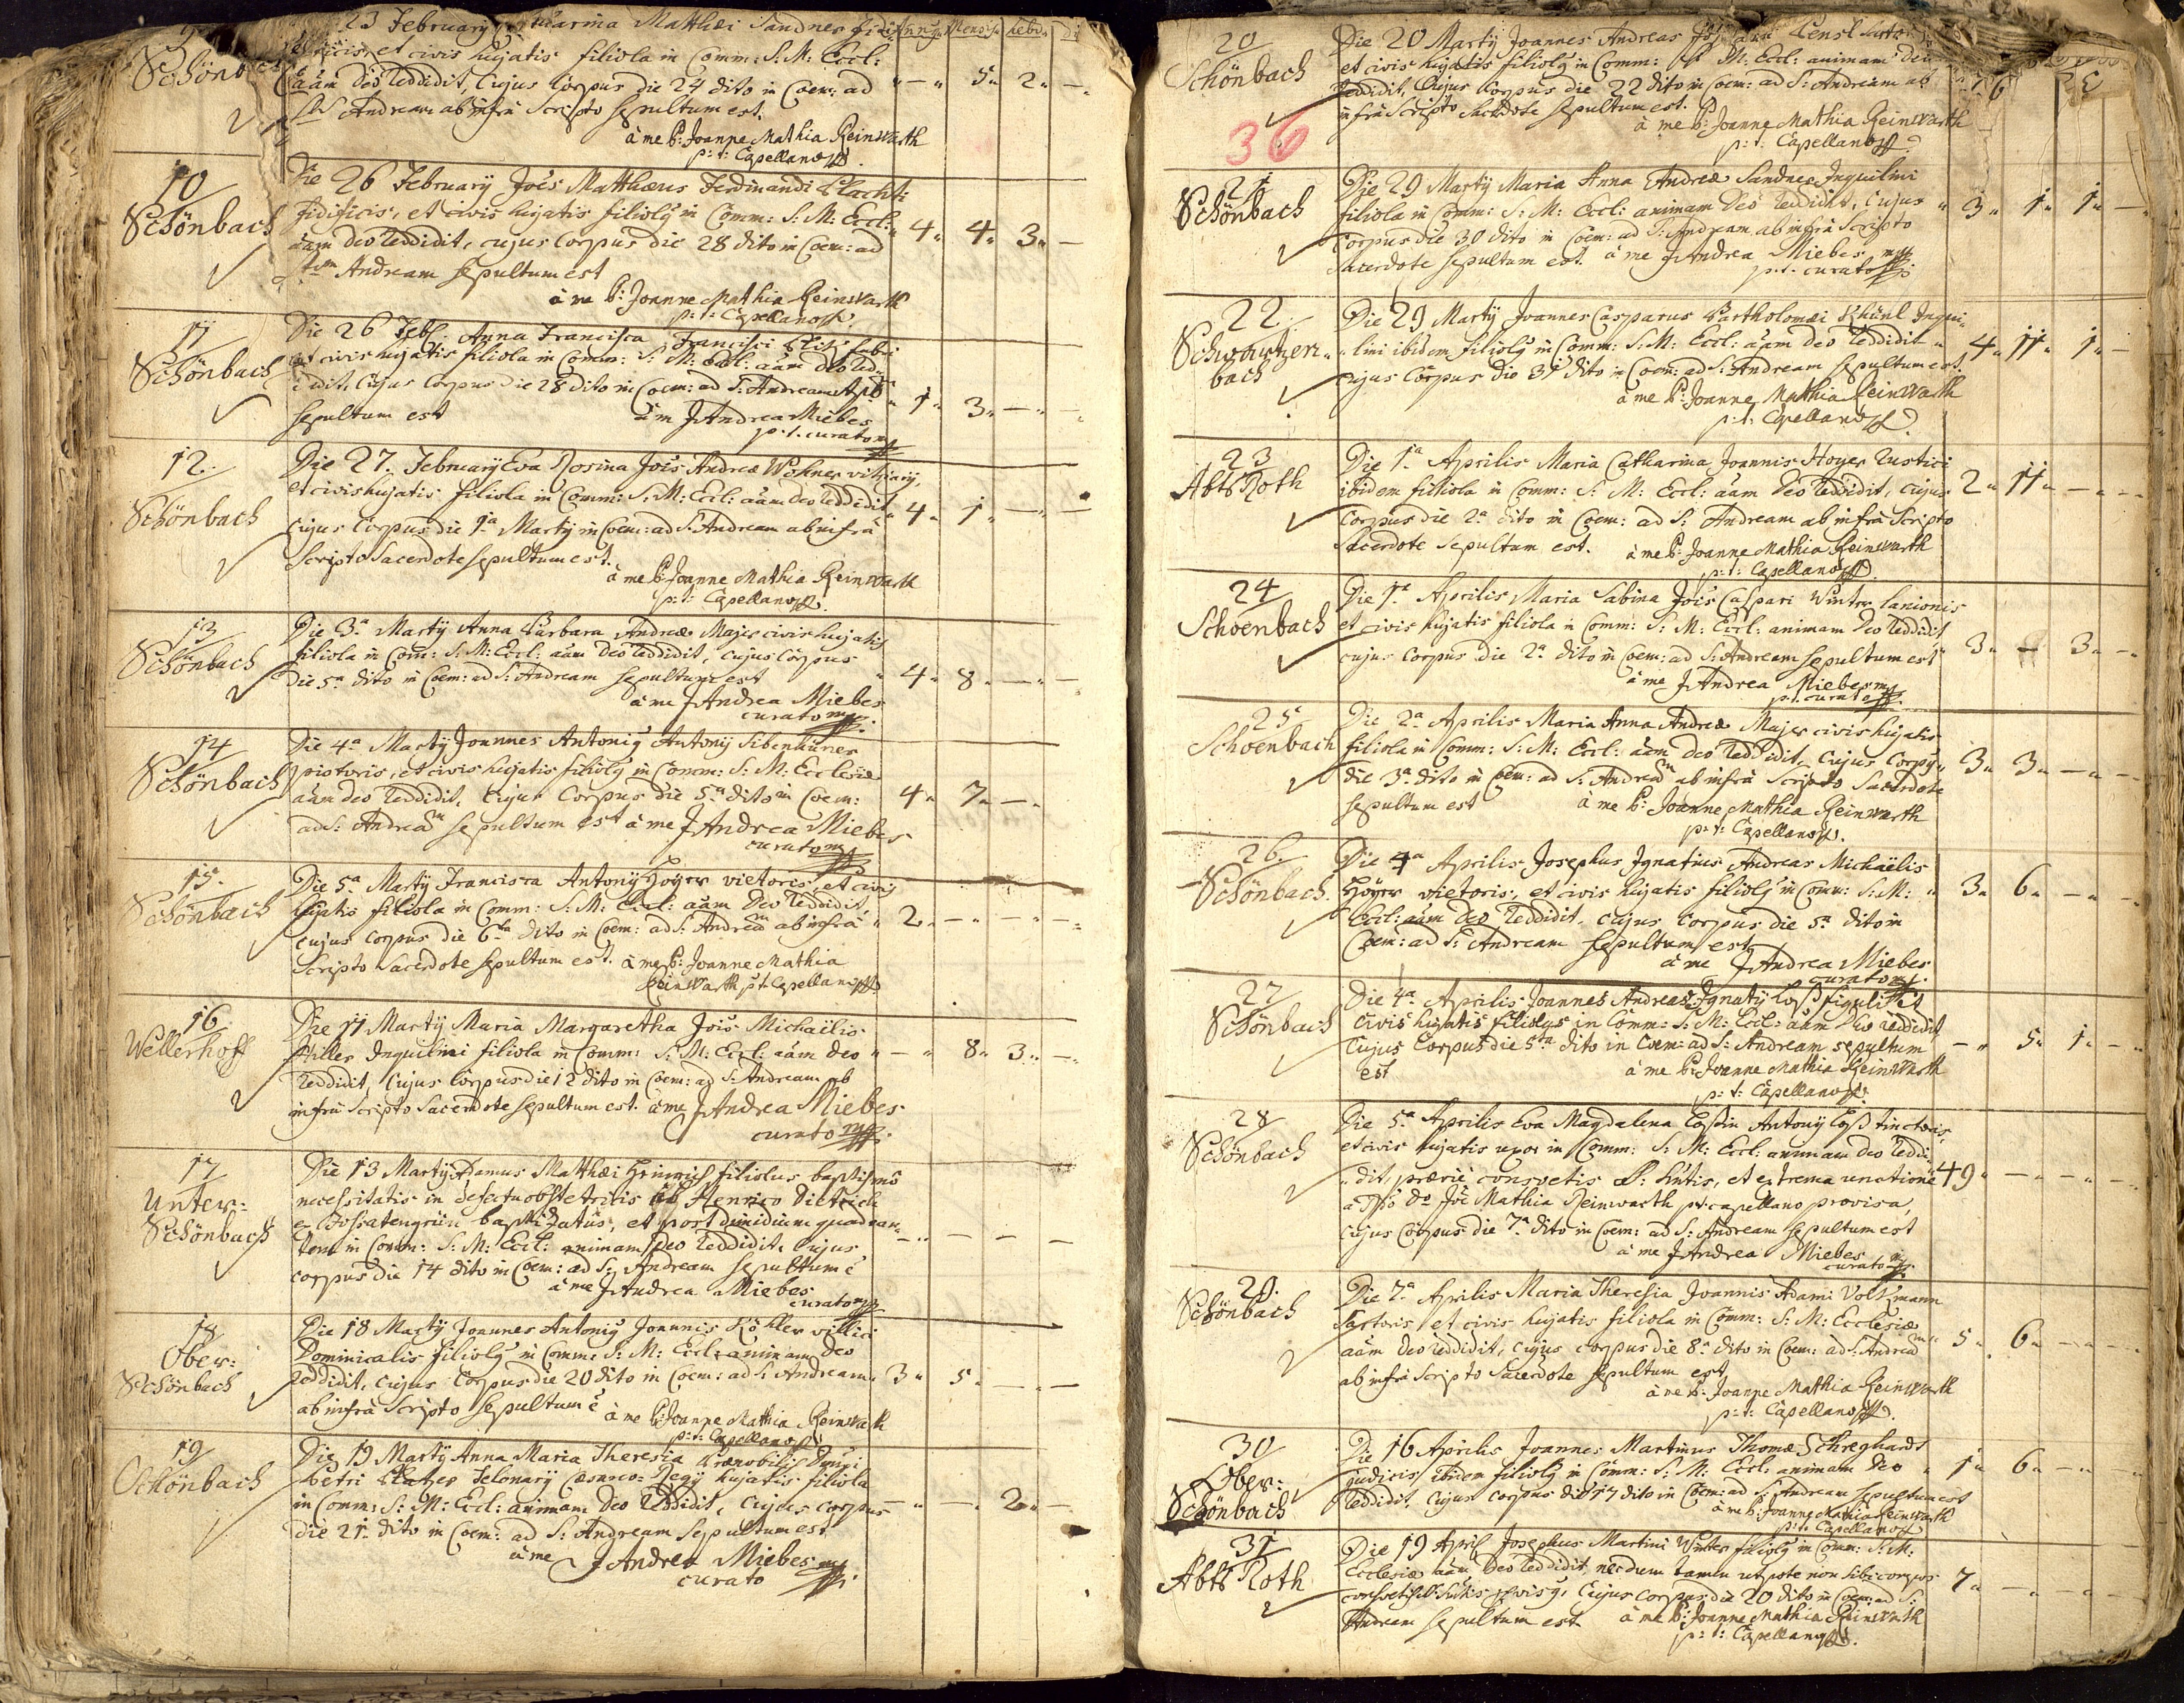 23 February Matthæi Sandner
et civis hujatis filiola in Comm: S: M: Eccl:
Schönbach
aãm deo reddidit, cujus corpus die 24 dito in Coem: ad
5 2 —
Andream ab infra scripto sepultum est.
à me P: Joanne Mathia Reinwarth
p: t: Capellano
10
Schönbach
Die 26 February Jois Matthæus Ferdinandi
fidificis, et civis hujatis filioly in Comm: S: M: Eccl:
4 4 3 —
aãm deo reddidit, cujus corpus die 28 dito in Coem: ad
Andream sepultum est
à me P: Joanne Mathia Reinwarth
p: t: Capellano
11
Schönbach
Die 26 Feb Anna Francisca Francisci
et civis hujatis filiola in Comm: S: M: Eccl: aãm deo red-
didit, cujus corpus die 28 dito in Coem: ad S: Andream
1 3 — —
sepultum est à me J Andrea Miebes
p. t. curato
12
Schönbach
Die 27. February Eva Rosina Jois Andreæ Wohner vitriarÿ,
et civis hujatis filiola in Comm: S: M: Eccl: aãm deo reddidit
4 1 — —
cujus corpus die 1ª Martÿ in Coem: ad S: Andream ab infrà
scripto sacerdote sepultum est.
à me P: Joanne Mathia Reinwarth
p: t: Capellano
13
Schönbach
Die 3ª Martÿ Anna Barbara Andreæ Majer civis hujatis
filiola in Com: S: M: Eccl: aãm deo reddidit, cujus corpus
die 5ª dito in Coem: ad S: Andream sepultum est
4 8 — —
à me J Andrea Miebes
curato
14
Schönbach
Die 4ª Martÿ Joannes Antonig Antonÿ Sibenhüner
pistoris, et civis hujatis filioly in Comm: S: M: Ecclesiæ
aãm deo reddidit, cujus corpus die 5ª dito in Coem:
4 7 —
ad S: Andreãm sepultum est à me J Andrea Miebes
curato
15.
Schönbach
Die 5ª Martÿ Francisca Antonÿ Hoÿer vietoris, et civis
hujatis filiola in Comm: S: M: Eccl: aãm deo reddidit
2 — — —
cujus corpus die 6ta dito in Coem: ad S: Andream ab infrà
scripto sacerdote sepultum est. à me P: Joanne Mathia
Reinwarth p: t: Capellano
16
Wellerhoff
Die 11 Martÿ Maria Margaretha Jois Michaëlis
Hiller Inquilini filiola in Comm: S: M: Eccl: aãm deo
— 8 3 —
reddidit, cujus corpus die 12 dito in Coem: ad S: Andream ab
infrà scripto sacerdote sepultum est. à me J Andrea Miebes
curato
17
Unter:
Schönbach
Die 13 Martÿ Adamus Matthæi Heinrich filiolus baptismo
necessitatis in defectu obstetricis ab Henrico Dietrich
e Fossatengrün baptizatus, et post dimidium quadran-
tem in Comm: S: M: Eccl: animam deo reddidit, cujus
— — — —
corpus die 14 dito in Coem: ad S: Andream sepultum ē
à me J Andrea Miebes
curato
18
Ober:
Schönbach
Die 18 Martÿ Joannes Antonig Joannis Köhler villici
Dominicalis filioly in Comm: S: M: Eccl: animam deo
reddidit, cujus corpus die 20 dito in Coem: ad S: Andream
3 5 — —
ab infrà scripto sepultum ē
à me P: Joanne Mathia Reinwarth
p: t: Capellano
19
Schönbach
Die 19 Martÿ Anna Maria Theresia Prænobilis Domini
Petri Platzer Telonarÿ Cæsareo: Regÿ hujatis filiola
in Comm: S: M: Eccl: animam deo reddidit, cujus corpus
— — 2 —
die 21. dito in Coem: ad S: Andream sepultum est
à me J Andrea Miebes
curato
20
Schönbach
Die 20 Martÿ Joannes Andreas
et civis hujatis filioly in Comm: S: M: Eccl: animam deo
reddidit, cujus corpus die 22 dito in Coem: ad S: Andream ab
infrà scripto sacerdote sepultum est.
à me P: Joanne Mathia Reinwarth
p: t: Capellano
36
21
Schönbach
Die 29 Martÿ Maria Anna Andreæ Sandner Inquilini
filiola in Comm: S: M: Eccl: animam deo reddidit, cujus
3 1 1 —
corpus die 30 dito in Coem: ad S: Andream ab infrà scripto
sacerdote sepultum est. à me J Andrea Miebes
p. t. curato
22.
Schwartzen
bach
Die 29 Martÿ Joannes Casparus Bartholomæi Khünl Inqui-
lini ibidem filioly in Comm: S: M: Eccl: aãm deo reddidit
4 11 1 —
cujus corpus die 31 dito in Coem: ad S: Andream sepultum est.
à me P: Joanne Mathia Reinwarth
p: t: Capellano
23
Abts Roth
Die 1ª Aprilis Maria Catharina Joannis Hoyer rustici
ibidem filiola in Comm: S: M: Eccl: aãm deo reddidit, cujus
2 11 — —
corpus die 2ª dito in Coem: ad S: Andream ab infrà scripto
sacerdote sepultum est. à me P: Joanne Mathia Reinwarth
p: t: Capellano
24
Schoenbach
Die 1ª Aprilis Maria Sabina Jois Caspari Winter lanionis
et civis hujatis filiola in Comm: S: M: Eccl: animam deo reddidit
cujus corpus die 2ª dito in Coem: ad S: Andream sepultum est
3 — 3 —
à me J Andrea Miebes
p. t. curato
25
Schoenbach
Die 2ª Aprilis Maria Anna Andreæ Majer civis hujatis
filiola in Comm: S: M: Eccl: aãm deo reddidit, cujus corpy
3 3 — —
die 3ª dito in Coem: ad S: Andream ab infrà scripto sacerdote
sepultum est à me P: Joanne Mathia Reinwarth
p: t: Capellano
26.
Schönbach
Die 4ª Aprilis Josephus Ignatius Andreas Michaëlis
Hoÿer vietoris, et civis hujatis filioly in Comm: S: M:
3 6 — —
Eccl: aãm deo reddidit, cujus corpus die 5ª dito in
Coem: ad S: Andream sepultum est
à me J Andrea Miebes
curato
27
Schönbach
Die 4ª Aprilis Joannes Andreas Ignatÿ Loß figuli et
civis hujatis filiolus in Comm: S: M: Eccl: aãm deo reddidit
cujus corpus die 5ta dito in Coem: ad S: Andream sepultum
— 5 1 —
est à me P: Joanne Mathia Reinwarth
p: t: Capellano
28
Schönbach
Die 5ª Aprilis Eva Magdalena Loßin Antonÿ Loß tinctoris,
et civis hujatis uxor in Comm: S: M: Eccl: animam deo reddi-
dit, præviè consvetis S: S:tis, et extrema unctione
49 — — —
Jõe Mathia Reinwarth p: t: capellano provisa,
cujus corpus die 7ª dito in Coem: ad S: Andream sepultum est
à me J Andrea Miebes
curato
29.
Schönbach
Die 7ª Aprilis Maria Theresia Joannis Adami Voltzmann
sartoris et civis hujatis filiola in Comm: S: M: Ecclesiæ
aãm deo reddidit, cujus corpus die 8ª dito in Coem: ad S: Andream
5 6 — —
ab infrà scripto sacerdote sepultum est
à me P: Joanne Mathia Reinwarth
p: t: Capellano
30
Ober:
Schönbach
Die 16 Aprilis Joannes Martinus Thomæ Schreghardt
judicis ibidem filioly in Comm: S: M: Eccl: animam deo
1 6 —
reddidit, cujus corpus die 17 dito in Coem: ad S: Andream sepultum est
à me P: Joanne Mathia Reinwarth
p: t: Capellano
31
Abts Roth
Die 19 April Josephus Martini Winter filioly in Comm: S: M:
Ecclesiæ aãm deo reddidit, necdum tamen utpote non sibi compos
7 — — —
cujus corpus die 20 dito in Coem: ad S:
Andream sepultum est à me P: Joanne Mathia Reinwarth
p: t: Capellano